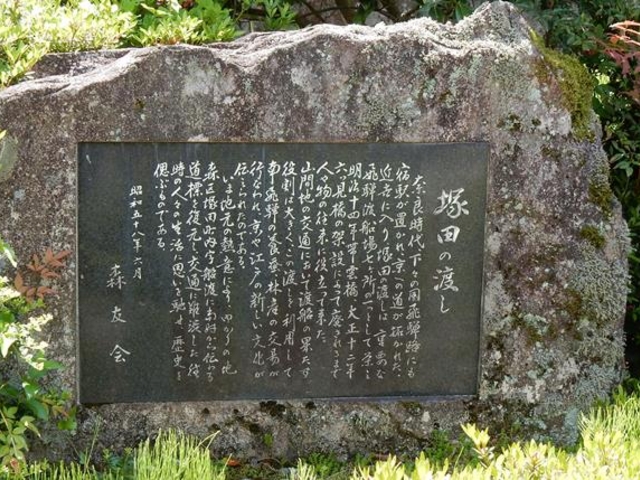 塚田の渡し
奈良時代、下々の国飛騨路にも
宿駅が置かれ京への道が拓かれた。
近世に入り塚田の渡しは重要な
飛騨渡船場七ヶ所の一つとして栄え
明治十四年夢雲橋、大正十二年
六ツ見橋の架設によって廃されるまで
人や物の往来に役立って来た。
山間地の交通において渡船の果たす
役割は大きくこの渡しを利用して
南飛騨の養蚕、林産の交易が
行なわれ、京や江戸の新しい文化が
伝えられたのである。
いま地元の熱意により、ゆかりの地
森区塚田町内字船渡に古くから伝わる
道標を復元し交通に難渋した往
時の人々の生活に思いを馳せ、歴史を
偲ぶものである。
昭和五十八年六月
森友会